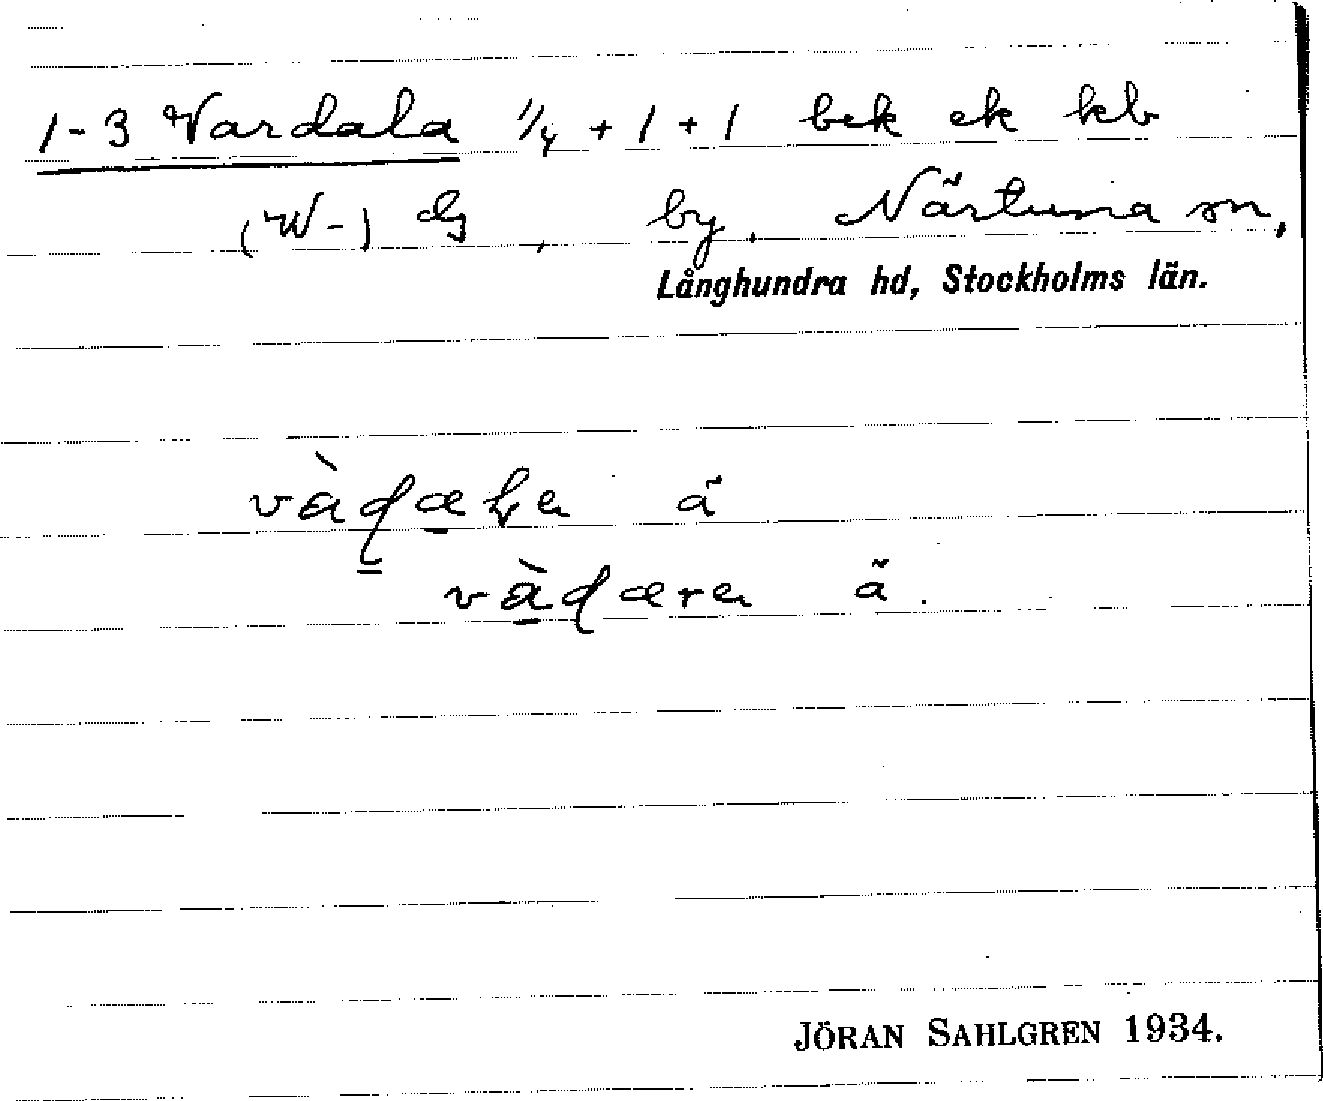 1-3 Vardala 1/4 + 1 + 1 bek ek kb
(W-) dg, by. Närtuna sn,
Långhundra hd, Stockholms län.
ä
ä.
JÖRAN SAHLGREN 1934.